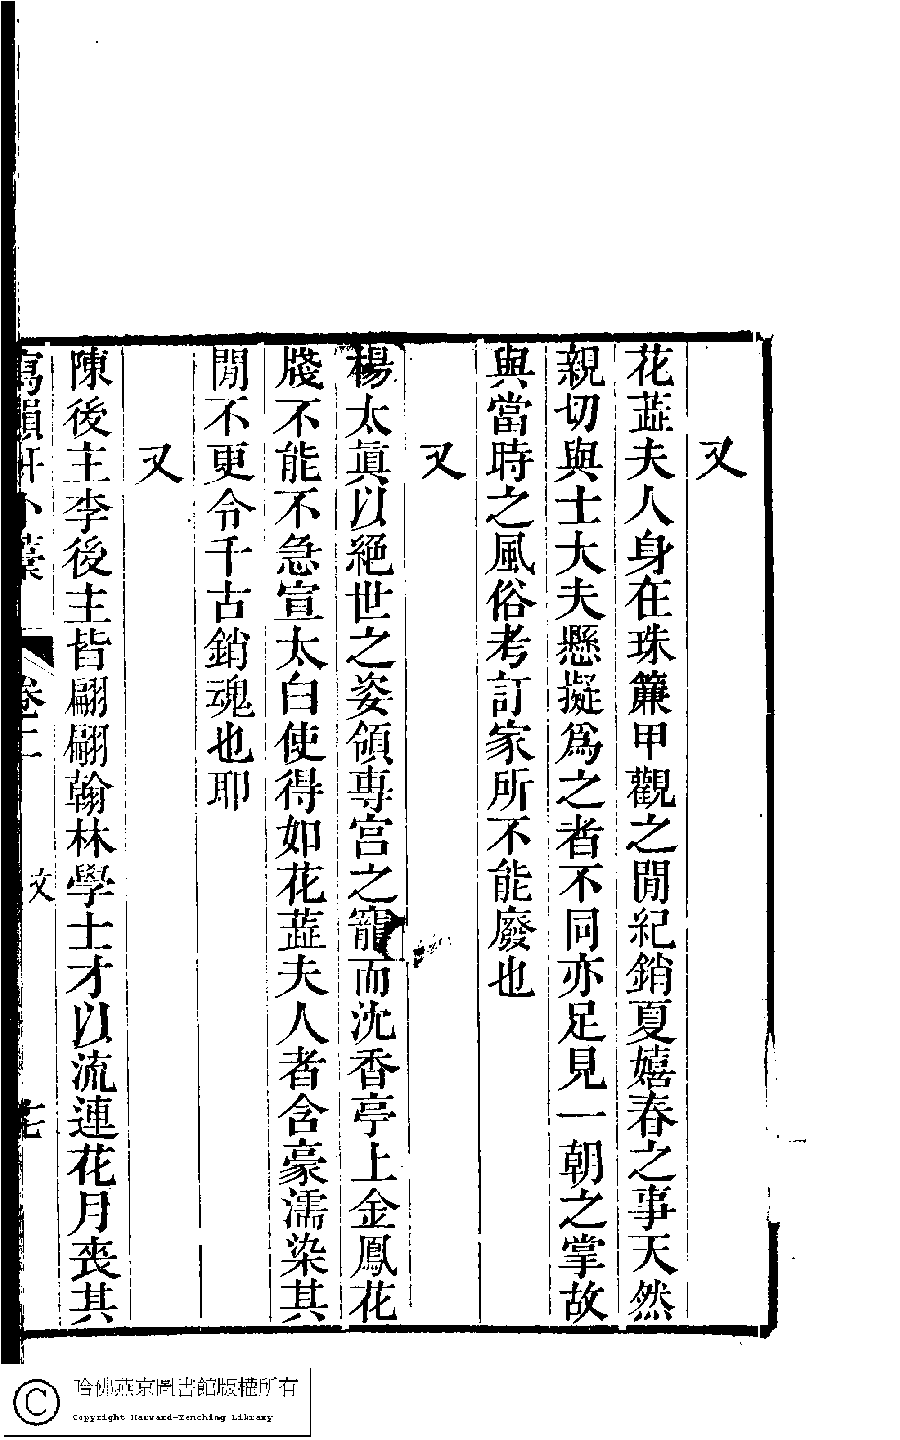 又
花蕋夫人身在珠簾甲觀之閒紀銷夏嬉春之事天然
親切與士大夫懸擬爲之者不同亦足見一朝之掌故
與當時之風俗考訂家所不能廢也
又
楊太眞以絕世之姿領專宮之寵而沈香亭上金鳳花
牋不能不急宣太白使得如花蕋夫人者含豪濡染其
閒不更令千古銷魂也耶
又
陳後主李後主皆翩翩翰林學士才以流連花月喪其
卷二 文
哈佛燕京圖書館版權所有
Copyright Harvard-Yenching Library